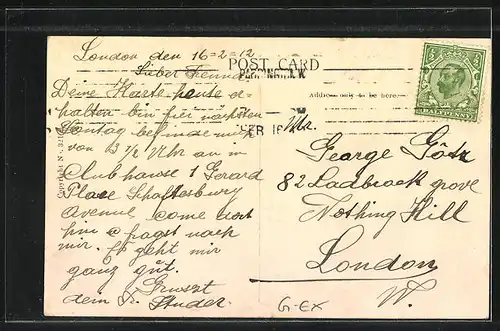 London den 16=2=12
POST CARD
PADDINGTON.W.
Lieber Freund
Address only to be here
Deine Karte heute er-
halten bin frei nächsten
Sontag befinde mich
SEP 16
von 1/2 Uhr an im
Clubhause 1 Gerard
Place Schaftesbury
Avenue, come dort
hin & fragst nach
mir. Es geht mir
ganz gut.
Gruszt
dein
Studer.
HALFPENNY
George Götz
82 Ladbrock grove
Nothing Hill
London
W.
G-EX